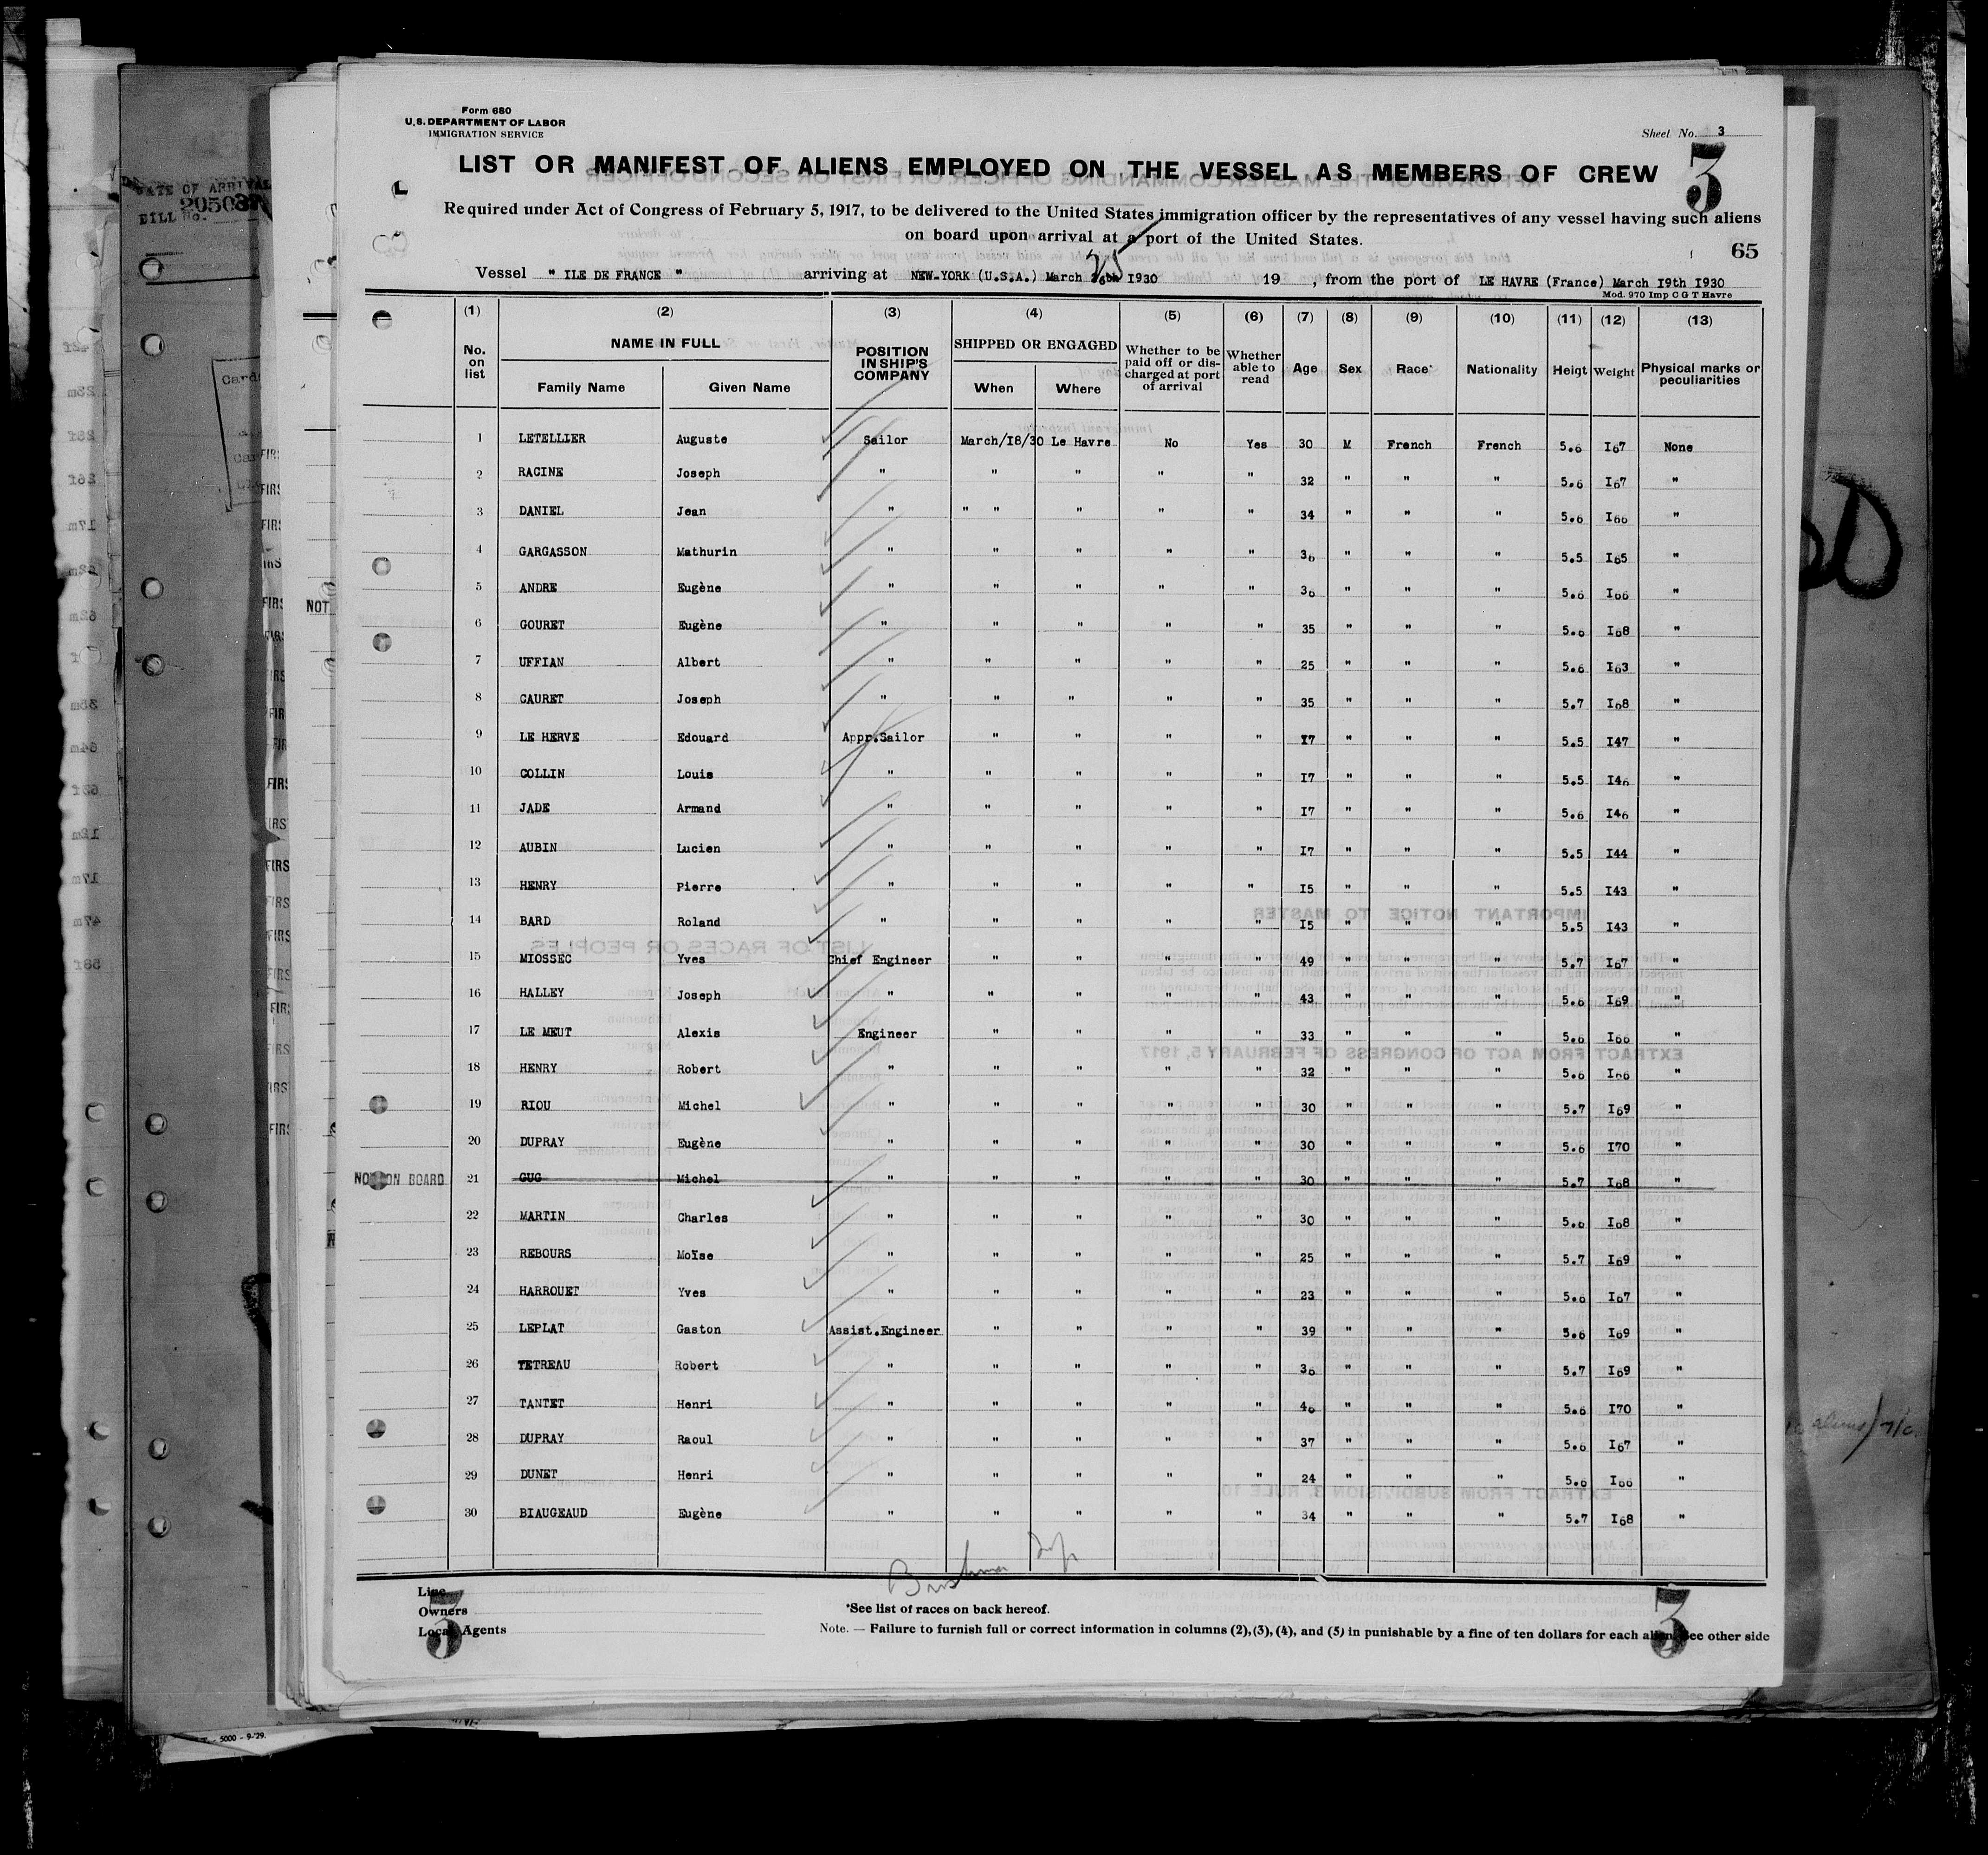 Form 680
U.S. DEPARTMENT OF LABOR
IMMIGRATION SERVICE
Sheet No. 3
LIST OR MANIFEST OF ALIENS EMPLOYED ON THE VESSEL AS MEMBERS OF CREW
3
Required under Act of Congress of February 5, 1917, to be delivered to the United States immigration officer by the representatives of any vessel having such aliens
on board upon arrival at a port of the United States.
65
Vessel " ILE DE FRANCE " arriving at NEW-YORK (U.S.A.) March 25 I930 19 , from the port of LE HAVRE (France) March I9th I930
Mod. 970 Imp C G T Havre
(1) (2) (3) (4) (5) (6) (7) (8) (9) (10) (11) (12) (13)
No. on list NAME IN FULL Family Name Given Name POSITION IN SHIP'S COMPANY SHIPPED OR ENGAGED When Where Whether to be paid off or discharged at port of arrival Whether able to read Age Sex Race* Nationality Heigt Weight Physical marks or peculiarities
1 LETELLIER Auguste Sailor March/I8/30 Le Havre No Yes 30 M French French 5.6 I67 None
2 RACINE Joseph " " " " " 32 " " " 5.6 I67 "
3 DANIEL Jean " " " " " " 34 " " " 5.6 I66 "
4 GARGASSON Mathurin " " " " " 36 " " " 5.5 I65 "
5 ANDRE Eugène " " " " " 36 " " " 5.6 I66 "
6 GOURET Eugène " " " " " 35 " " " 5.6 I68 "
7 UFFIAN Albert " " " " " 25 " " " 5.6 I63 "
8 CAURET Joseph " " " " " 35 " " " 5.7 I68 "
9 LE HERVE Edouard Appr.Sailor " " " " I7 " " " 5.5 I47 "
10 COLLIN Louis " " " " " I7 " " " 5.5 I46 "
11 JADE Armand " " " " " I7 " " " 5.6 I46 "
12 AUBIN Lucien " " " " " I7 " " " 5.5 I44 "
13 HENRY Pierre " " " " " I5 " " " 5.5 I43 "
14 BARD Roland " " " " " I5 " " " 5.5 I43 "
15 MIOSSEC Yves Chief Engineer " " " " 49 " " " 5.7 I67 "
16 HALLEY Joseph " " " " " 43 " " " 5.6 I69 "
17 LE MEUT Alexis Engineer " " " " 33 " " " 5.6 I66 "
18 HENRY Robert " " " " " 32 " " " 5.6 I66 "
19 RIOU Michel " " " " " 30 " " " 5.7 I69 "
20 DUPRAY Eugène " " " " " 30 " " " 5.6 I70 "
NOT ON BOARD 21 GUG Michel " " " " " 30 " " " 5.7 I68 "
22 MARTIN Charles " " " " " 30 " " " 5.6 I68 "
23 REBOURS Moïse " " " " " 25 " " " 5.7 I69 "
24 HARROUET Yves " " " " " 23 " " " 5.6 I67 "
25 LEPLAT Gaston Assist.Engineer " " " " 39 " " " 5.6 I69 "
26 TETREAU Robert " " " " " 36 " " " 5.7 I69 "
27 TANTET Henri " " " " " 46 " " " 5.6 I70 "
28 DUPRAY Raoul " " " " " 37 " " " 5.6 I67 "
29 DUNET Henri " " " " " 24 " " " 5.6 I66 "
30 BIAUGEAUD Eugène " " " " " 34 " " " 5.7 I68 "
Line
Owners
Local Agents
3
*See list of races on back hereof.
Note. — Failure to furnish full or correct information in columns (2), (3), (4), and (5) in punishable by a fine of ten dollars for each alien. See other side
3
DATE OF ARRIVAL
BILL No.
NOT
5000 - 9-29.